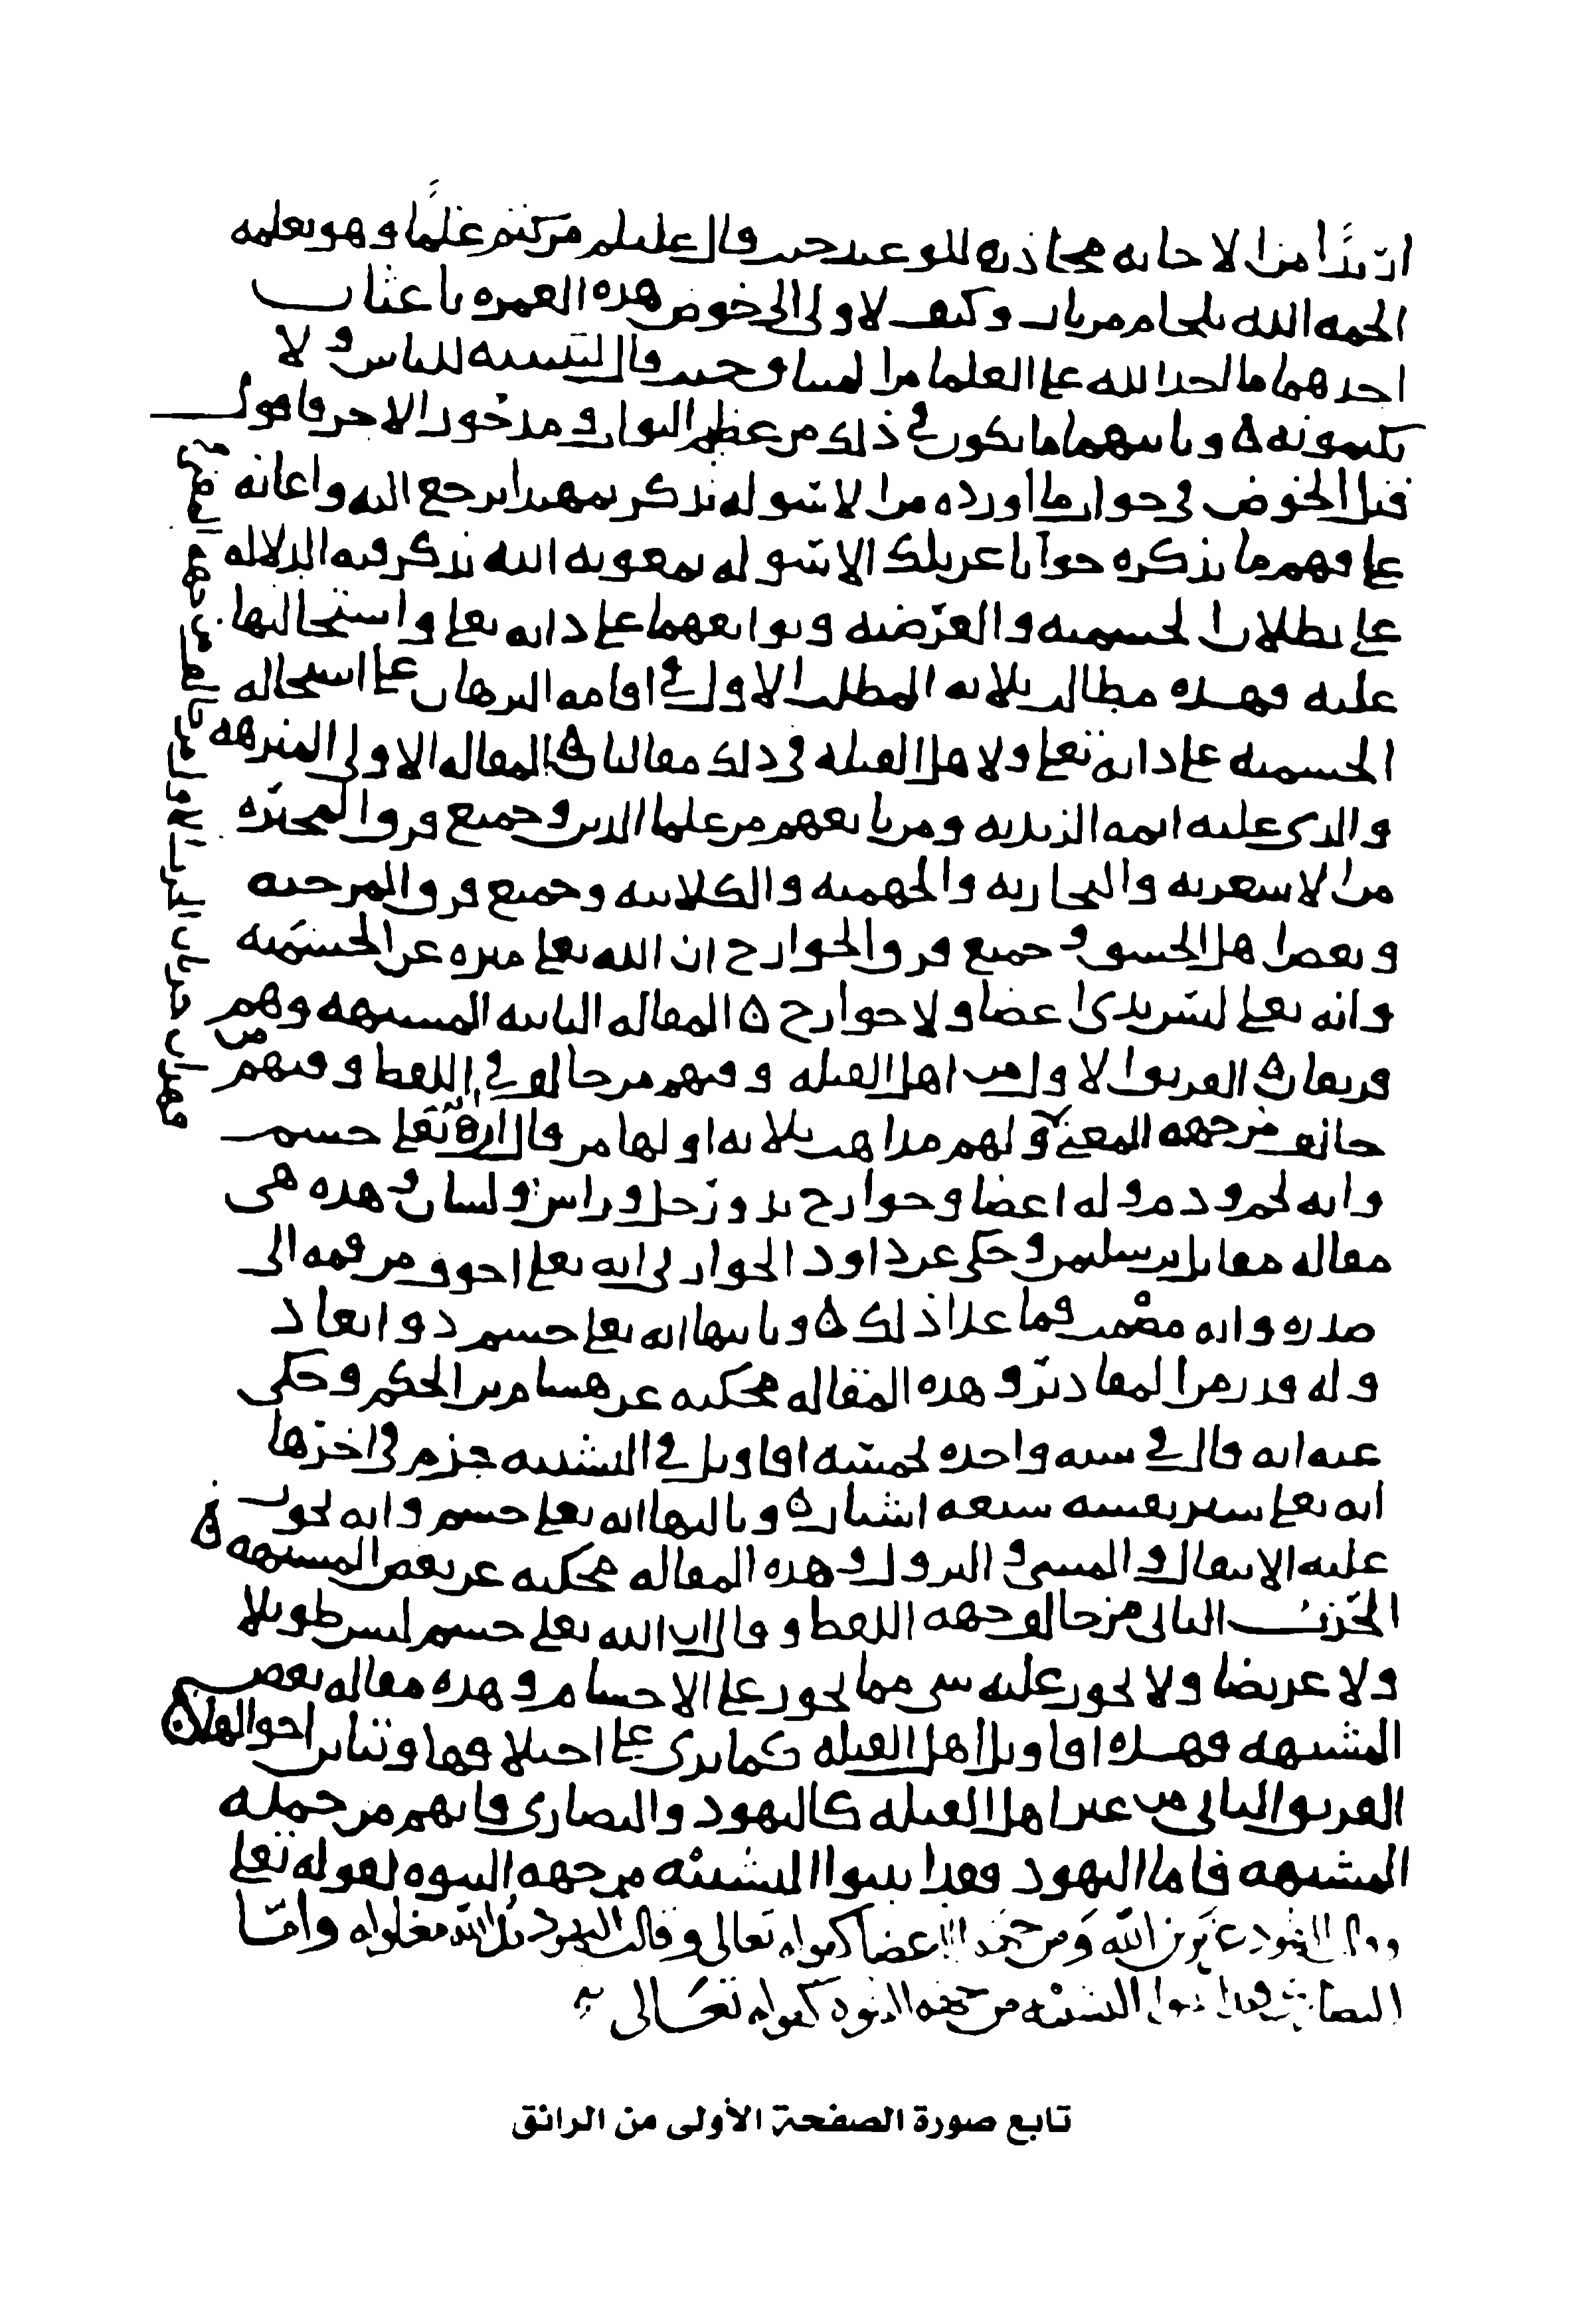 ان بدا من الاجابه محاذره للوعيد حيث قال عليلم من كتم علما وهو يعلمه
الجمه الله بلجام من نار وكيف لا ولى الى خوض هذه الغمره باعثان
احدهما ما اخذ الله على العلما من الميثاق حيث قال لتبيننه للناس ولا
تكتمونه ٥ وثانيهما ما يكون في ذلك من عظيم الثواب ومذخور الاجر فاقول
قبل الخوض في جواب ما اورده من الاسوله نذكر تمهيدا يرجع اليه واعانه
على فهم ما نذكره جوابا عن تلك الاسوله بمعونه الله نذكر فيه الدلاله
على بطلان الجسميه والعرضيه وتوابعهما على ذاته تعلى واستحالتها
عليه فهذه مطالب ثلاثه المطلب الاول في اقامه البرهان على استحاله
الجسميه على ذاته تعلى ولاهل القبله في ذلك مقالتان ٥ المقاله الاولى المنزهه
والذي عليه ايمه الزيديه ومن تابعهم من علما الدين وجميع فرق المجبره
من الاشعريه والنجاريه والجهميه والكلابيه وجميع فرق المرجيه
وبعض اهل الحشو وجميع فرق الخوارج ان الله تعلى منزه عن الجسميه
وانه تعلى ليس بذي اعضا ولا جوارح ٥ المقاله الثانيه المشبهه وهم
فريقان ٥ الفريق الاول من اهل القبله وفيهم من خالف في اللفظ وفيهم من
خالف من جهه المعنى ولهم مذاهب ثلاثه اولها من قال انه تعلى جسم
وانه لحم ودم وله اعضا وجوارح يد ورجل وراس ولسان وهذه هي
مقاله مقاتل بن سليمن وحكي عن داود الجواربي انه تعلى اجوف من فمه الى
صدره وانه مصمت فما عدا ذلك ٥ وثانيها انه تعلى جسم ذو ابعاد
وله قدر من المقادير وهذه المقاله محكيه عن هشام بن الحكم وحكى
عنه انه قال في سنه واحده خمسه اقاويل في التشبيه جزم في اخرها
انه تعلى بشبر نفسه سبعه اشبار ٥ وثالثها انه تعلى جسم وانه يجوز
عليه الانتقال والمشي والنزول وهذه المقاله محكيه عن بعض المشبهه ٥
الحزب الثاني من خالف من جهه اللفظ وقال ان الله تعلى جسم ليس طويلا
ولا عريضا ولا يجوز عليه شي مما يجوز على الاجسام وهذه مقاله بعض
المشبهه فهذه اقاويل اهل القبله كما ترى على اختلافها وتباين احوالها ٥
الفريق الثاني من غير اهل القبله كاليهود والنصارى فانهم من جمله
المشبهه فاما اليهود فقد اثبتوا التشبيه من جهه البنوه لقوله تعلى
وقالت اليهود عزير بن الله ومن جهه الاعضا كقوله تعالى وقالت اليهود يد الله مغلوله واما
النصارى فقد اثبتوا التشبيه من جهه البنوه كقوله تعالى
تابع صورة الصفحة الأولى من الرائق